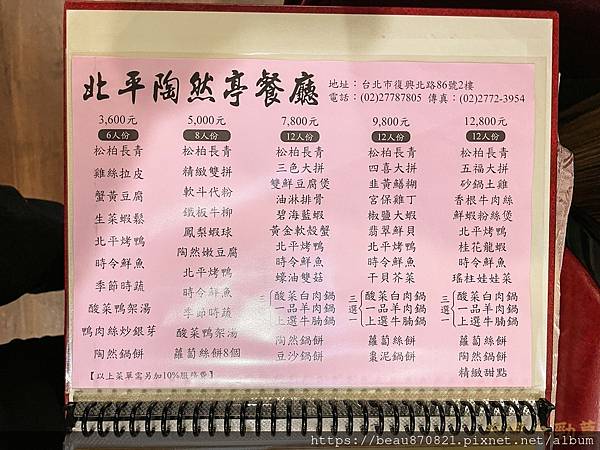 北平陶然亭餐廳
地址：台北市復興北路86號2樓
電話：(02)27787805 傳真：(02)2772-3954
3,600元
6人份
松柏長青
雞絲拉皮
蟹黃豆腐
生菜蝦鬆
北平烤鴨
時令鮮魚
季節時蔬
酸菜鴨架湯
鴨肉絲炒銀芽
陶然鍋餅
5,000元
8人份
松柏長青
精緻雙拼
軟斗代粉
鐵板牛柳
鳳梨蝦球
陶然嫩豆腐
北平烤鴨
時令鮮魚
季節時蔬
酸菜鴨架湯
蘿蔔絲餅8個
7,800元
12人份
松柏長青
三色大拼
雙鮮豆腐煲
油淋排骨
碧海藍蝦
黃金軟殼蟹
北平烤鴨
時令鮮魚
蠔油雙菇
三選一
酸菜白肉鍋
一品羊肉鍋
上選牛腩鍋
陶然鍋餅
豆沙鍋餅
9,800元
12人份
松柏長青
四喜大拼
韭黃鱔糊
宮保雞丁
椒鹽大蝦
翡翠鮮貝
北平烤鴨
時令鮮魚
干貝芥菜
三選一
酸菜白肉鍋
一品羊肉鍋
上選牛腩鍋
蘿蔔絲餅
棗泥鍋餅
12,800元
12人份
松柏長青
五福大拼
砂鍋土雞
香根牛肉絲
鮮蝦粉絲煲
北平烤鴨
桂花龍蝦
時令鮮魚
瑤柱娃娃菜
三選一
酸菜白肉鍋
一品羊肉鍋
上選牛腩鍋
蘿蔔絲餅
陶然鍋餅
精緻甜點
【以上菜單需另加10%服務費】
https://beau870821.pixnet.net/album